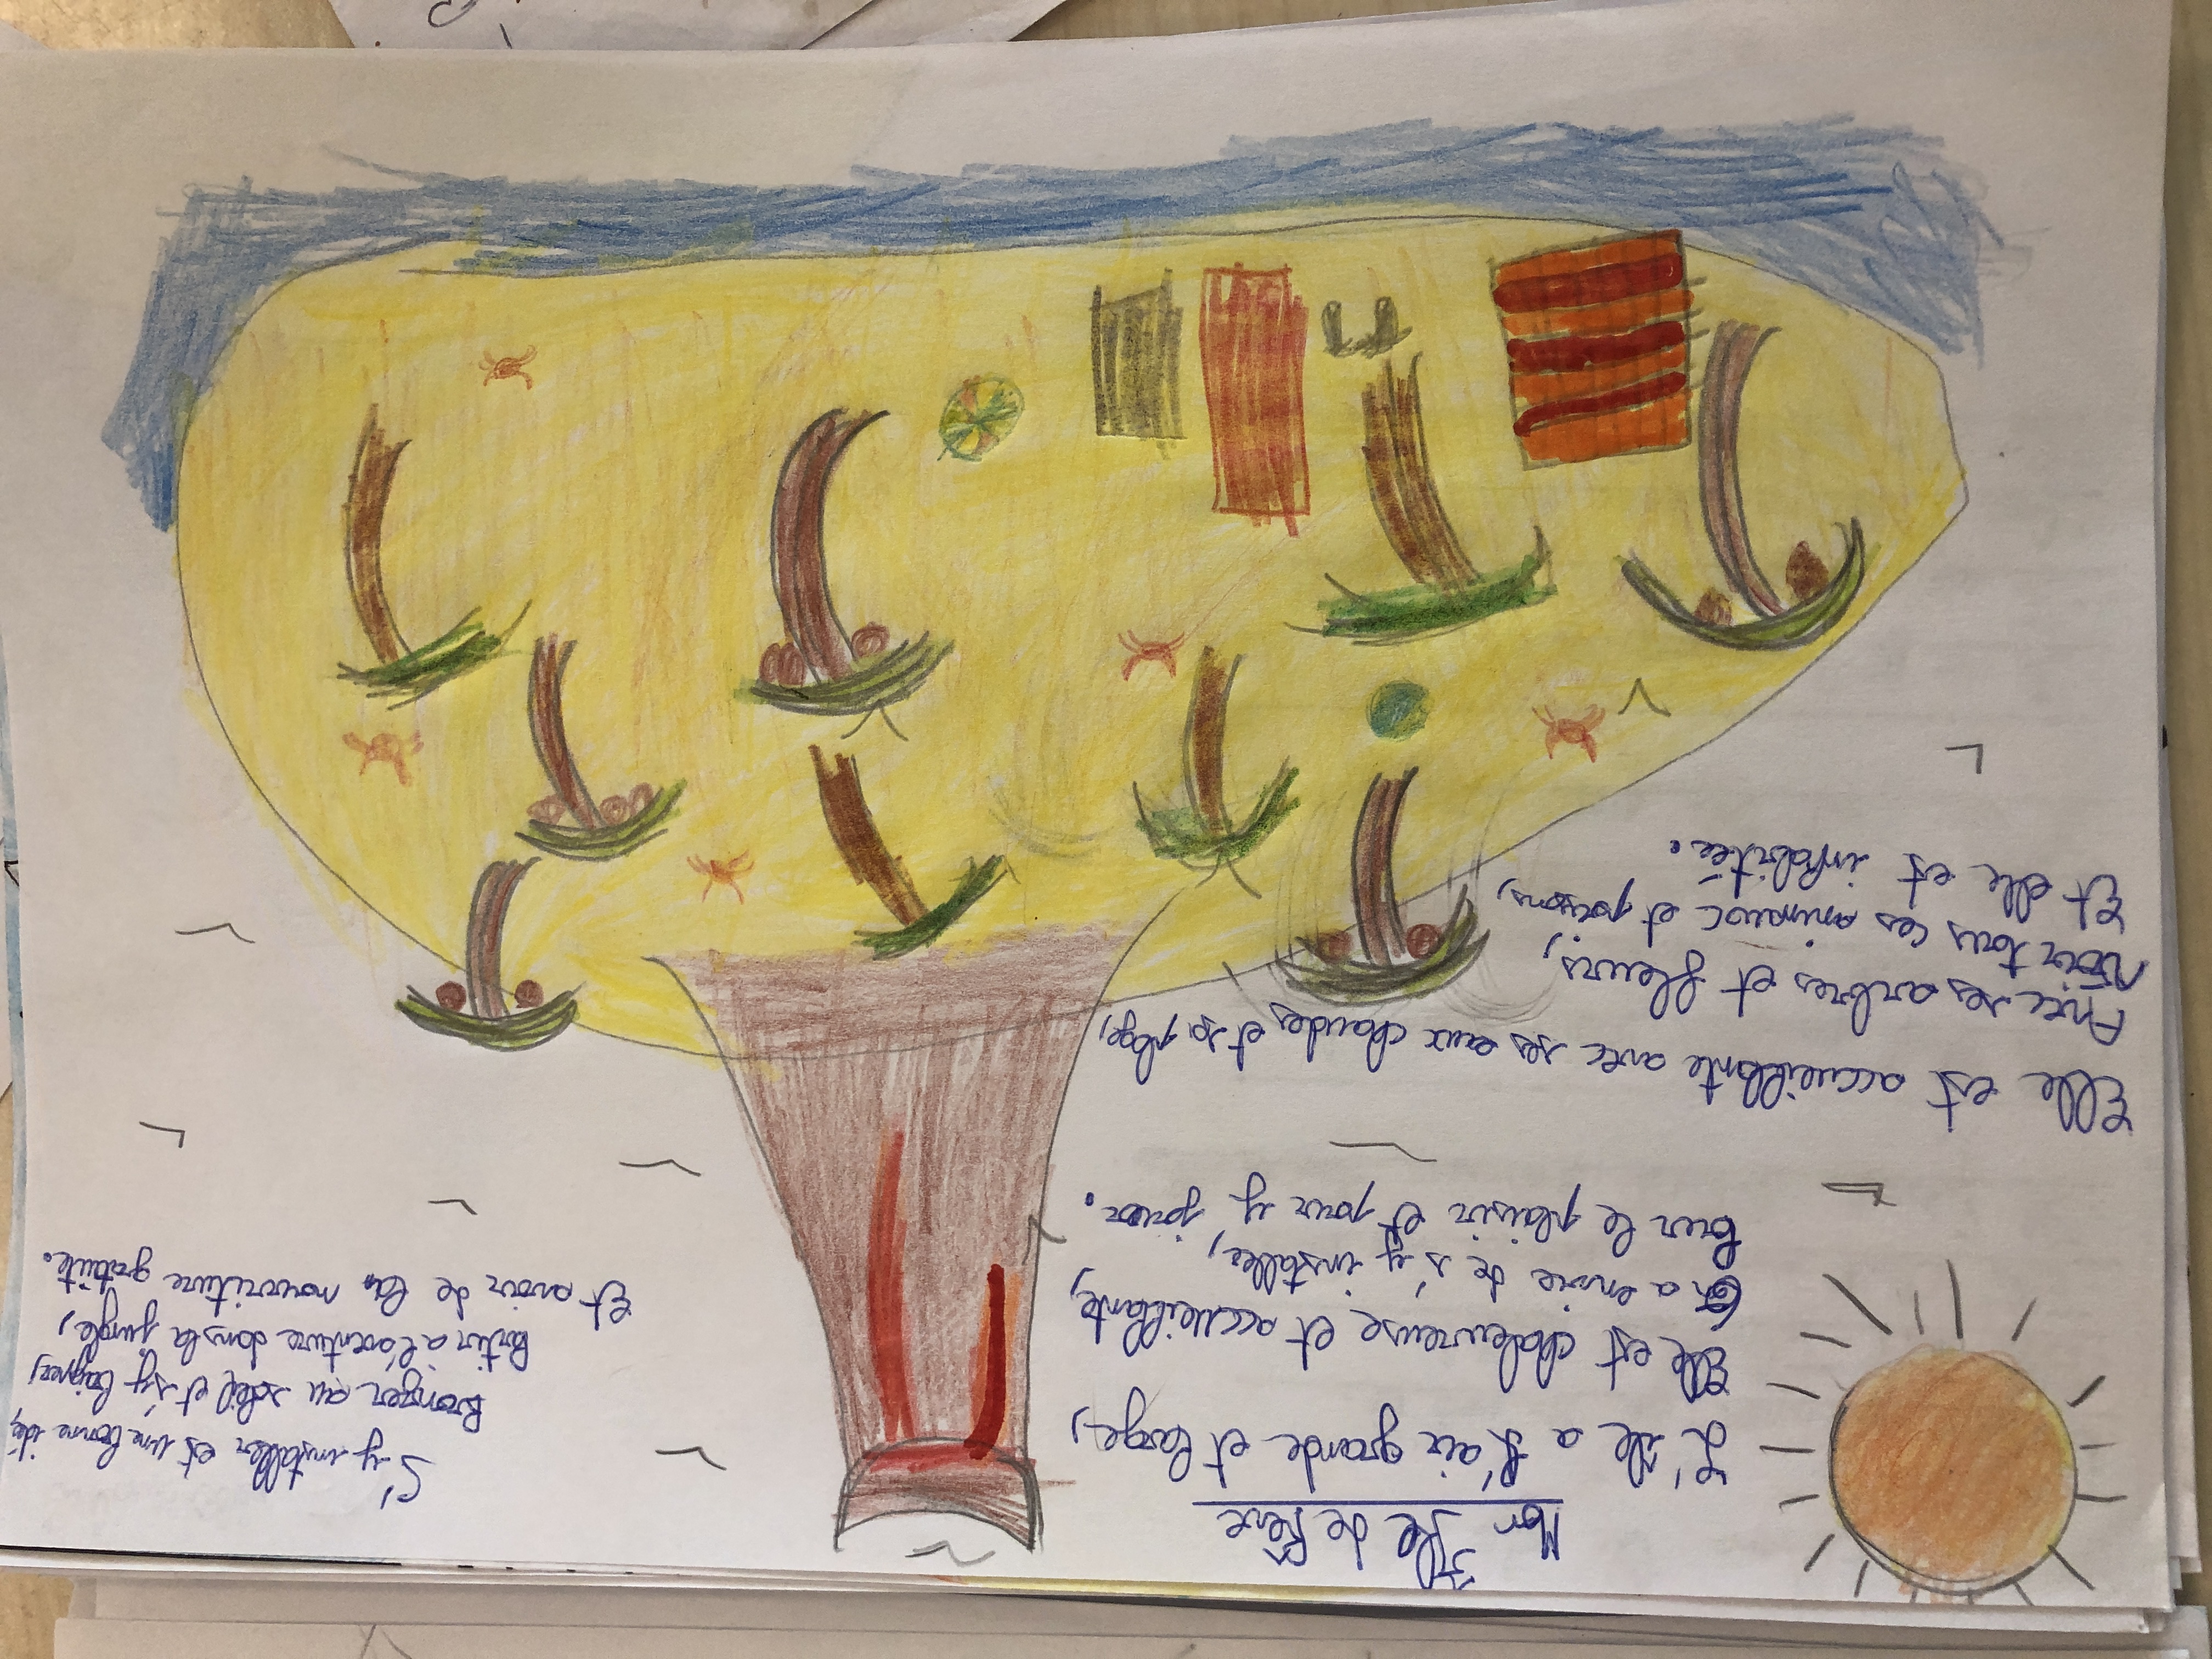 Mon Île de Rêve
L'île a l'air grande et large,
Elle est chaleureuse et accueillante,
On a envie de s'y installer,
Pour le plaisir et pour y jouer.
Elle est accueillante avec ses eaux chaudes et sa plage,
Avec ses arbres et fleurs,
Voir tous ces animaux et poissons,
Et elle est inhabitée.
S'y installer est une bonne idé,
Bronzer au soleil et s'y baigner,
Partir a l'aventure dans la jungle,
Et avoir de la nourriture gratuite.